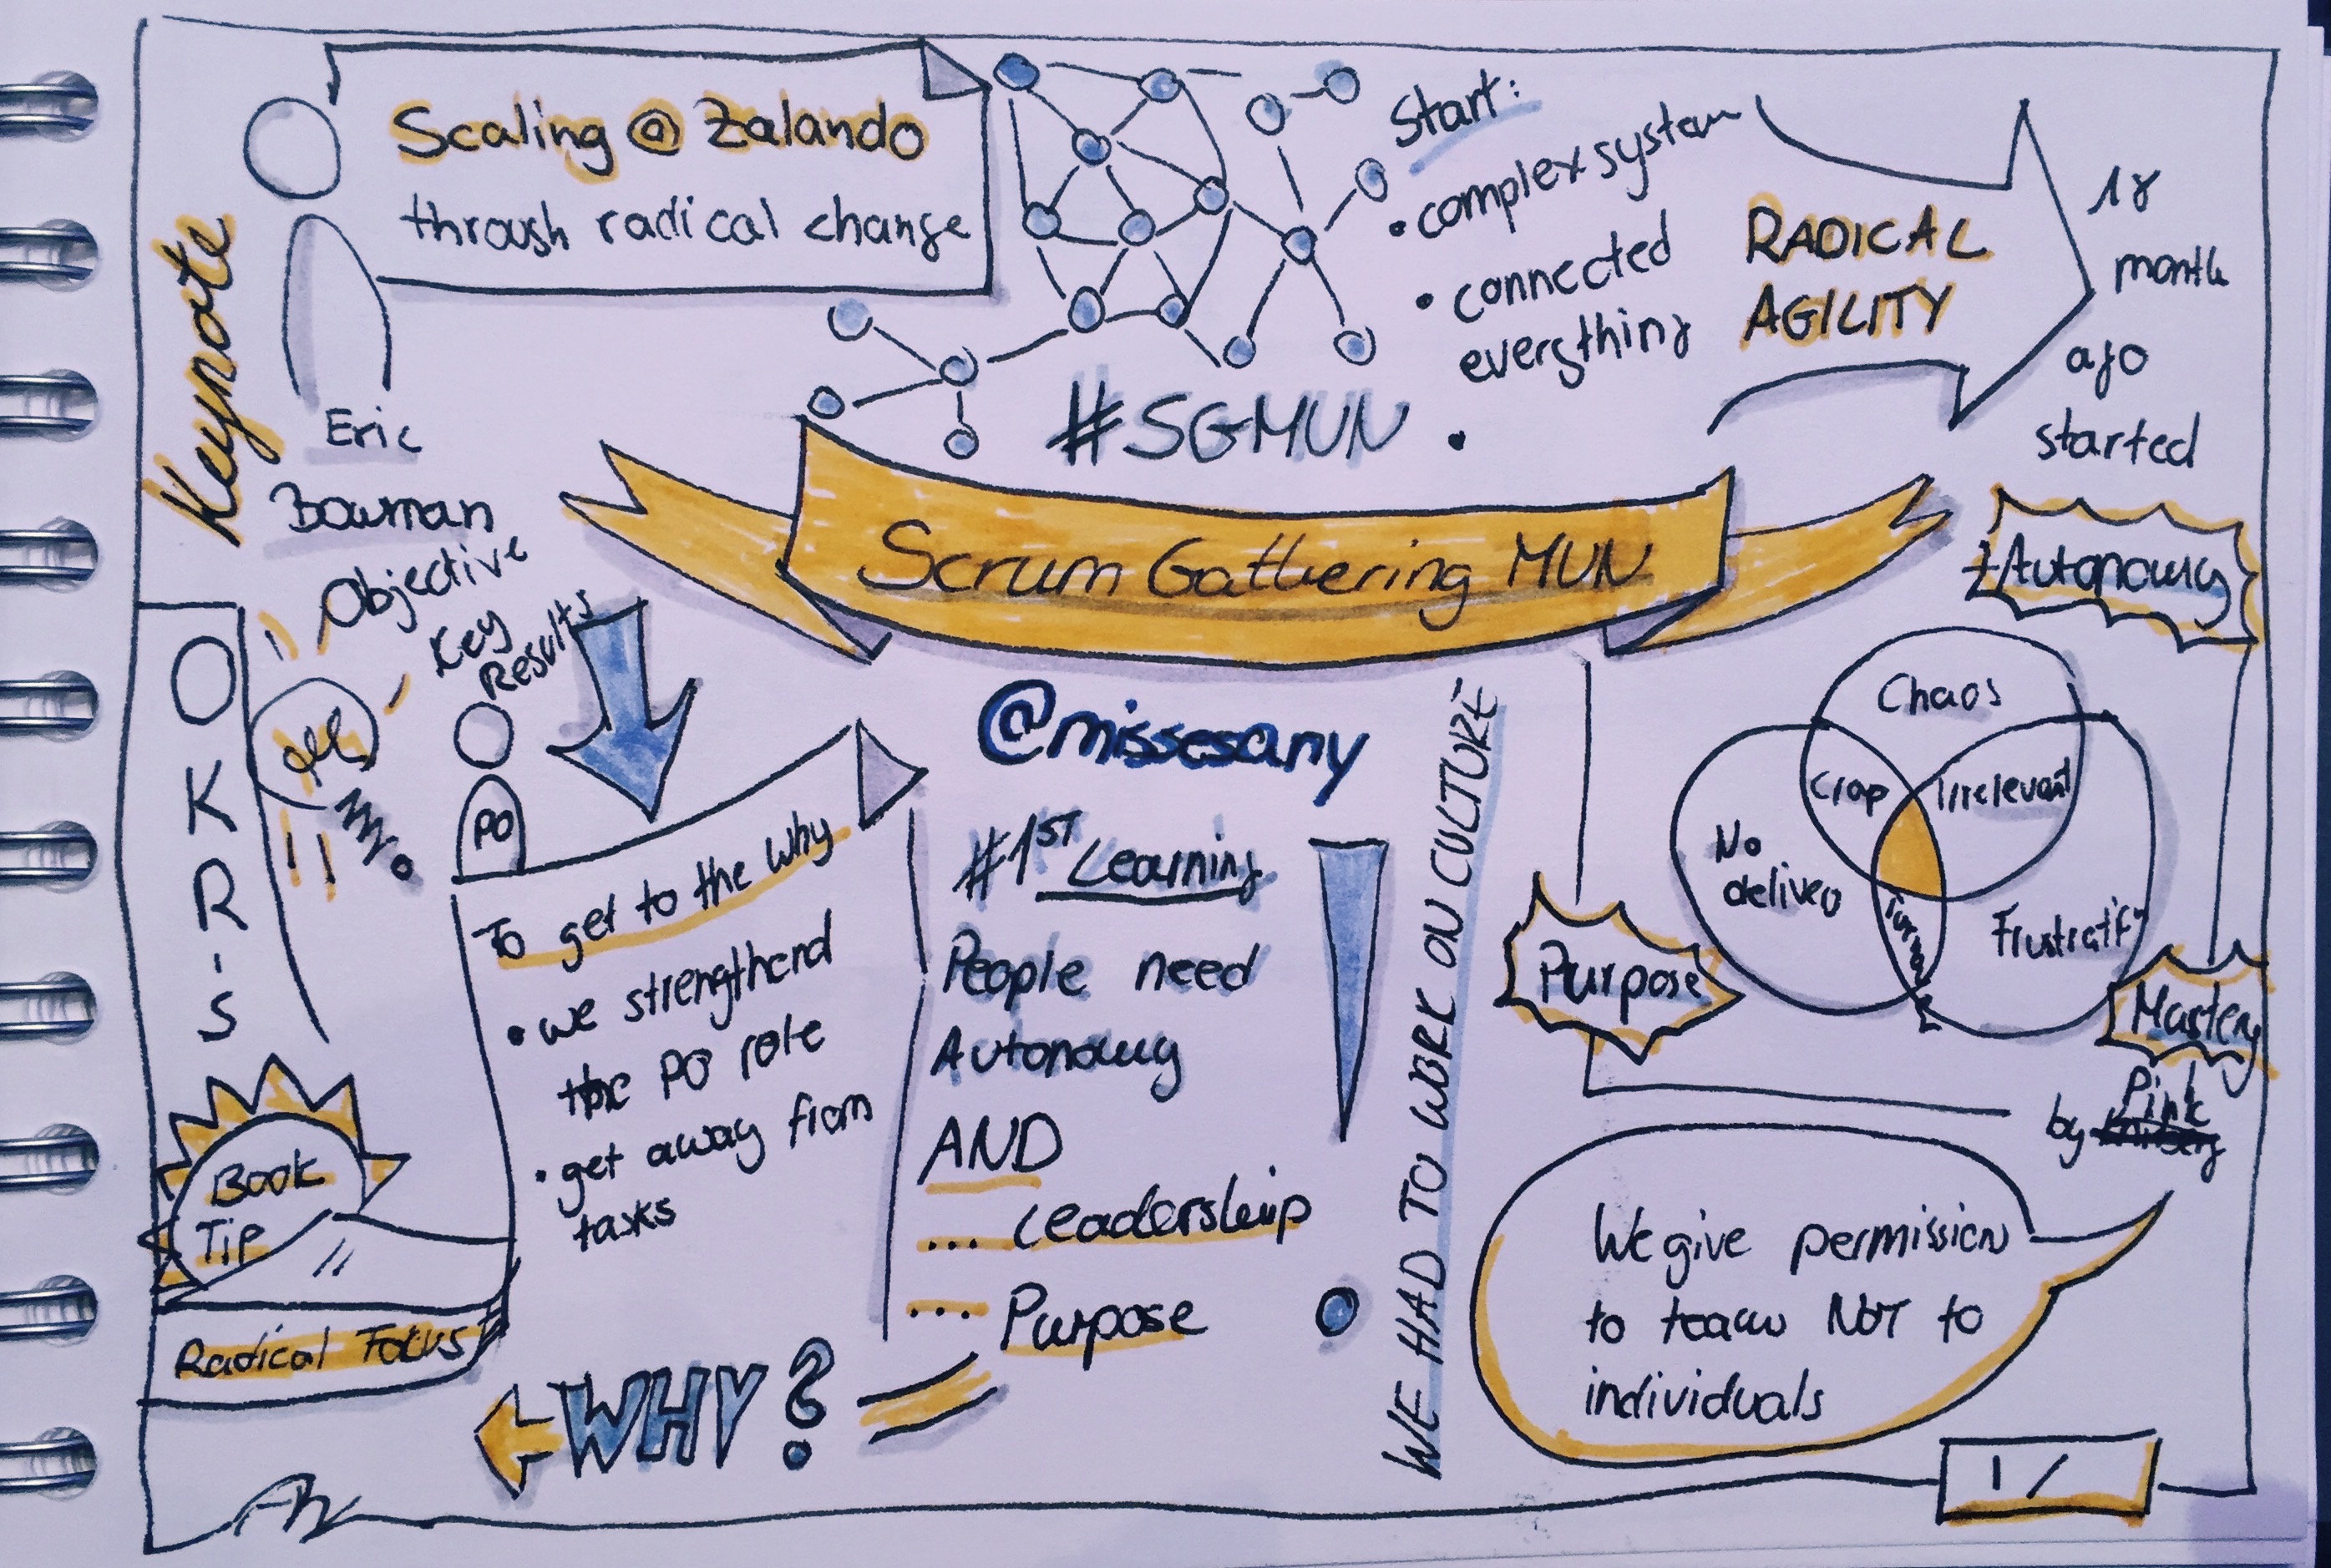 Keynote
Scaling @ Zalando
through radical change
Eric
Bowman
Start:
• complex system
• connected
everything
•
RADICAL
AGILITY
18
month
ago
started
#SGMUN
Scrum Gathering MUN
@missesany
O
K
R
-
S
Objective
Key
Results
PO
To get to the Why
• we strengthend
the PO role
• get away from
tasks
Book
Tip
Radical Focus
WHY?
#1ST Learning
People need
Autonomy
AND
... Leadership
... Purpose
WE HAD TO WORK ON CULTURE
Autonomy
Chaos
Crap
Irrelevant
No
delivery
Purpose
Mastery
by
Pink
We give permission
to team NOT to
individuals
1 /